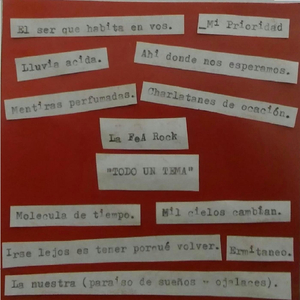 El ser que habita en vos.
_Mi Prioridad
Lluvia acida.
Ahi donde nos esperamos.
Mentiras perfumadas.
Charlatanes de ocación.
La Feá Rock
"TODO UN TEMA"
Molecula de tiempo.
Mil cielos cambian.
Irse lejos es tener porqué volver.
Ermitaneo.
La nuestra (paraiso de sueños - ojalaces).